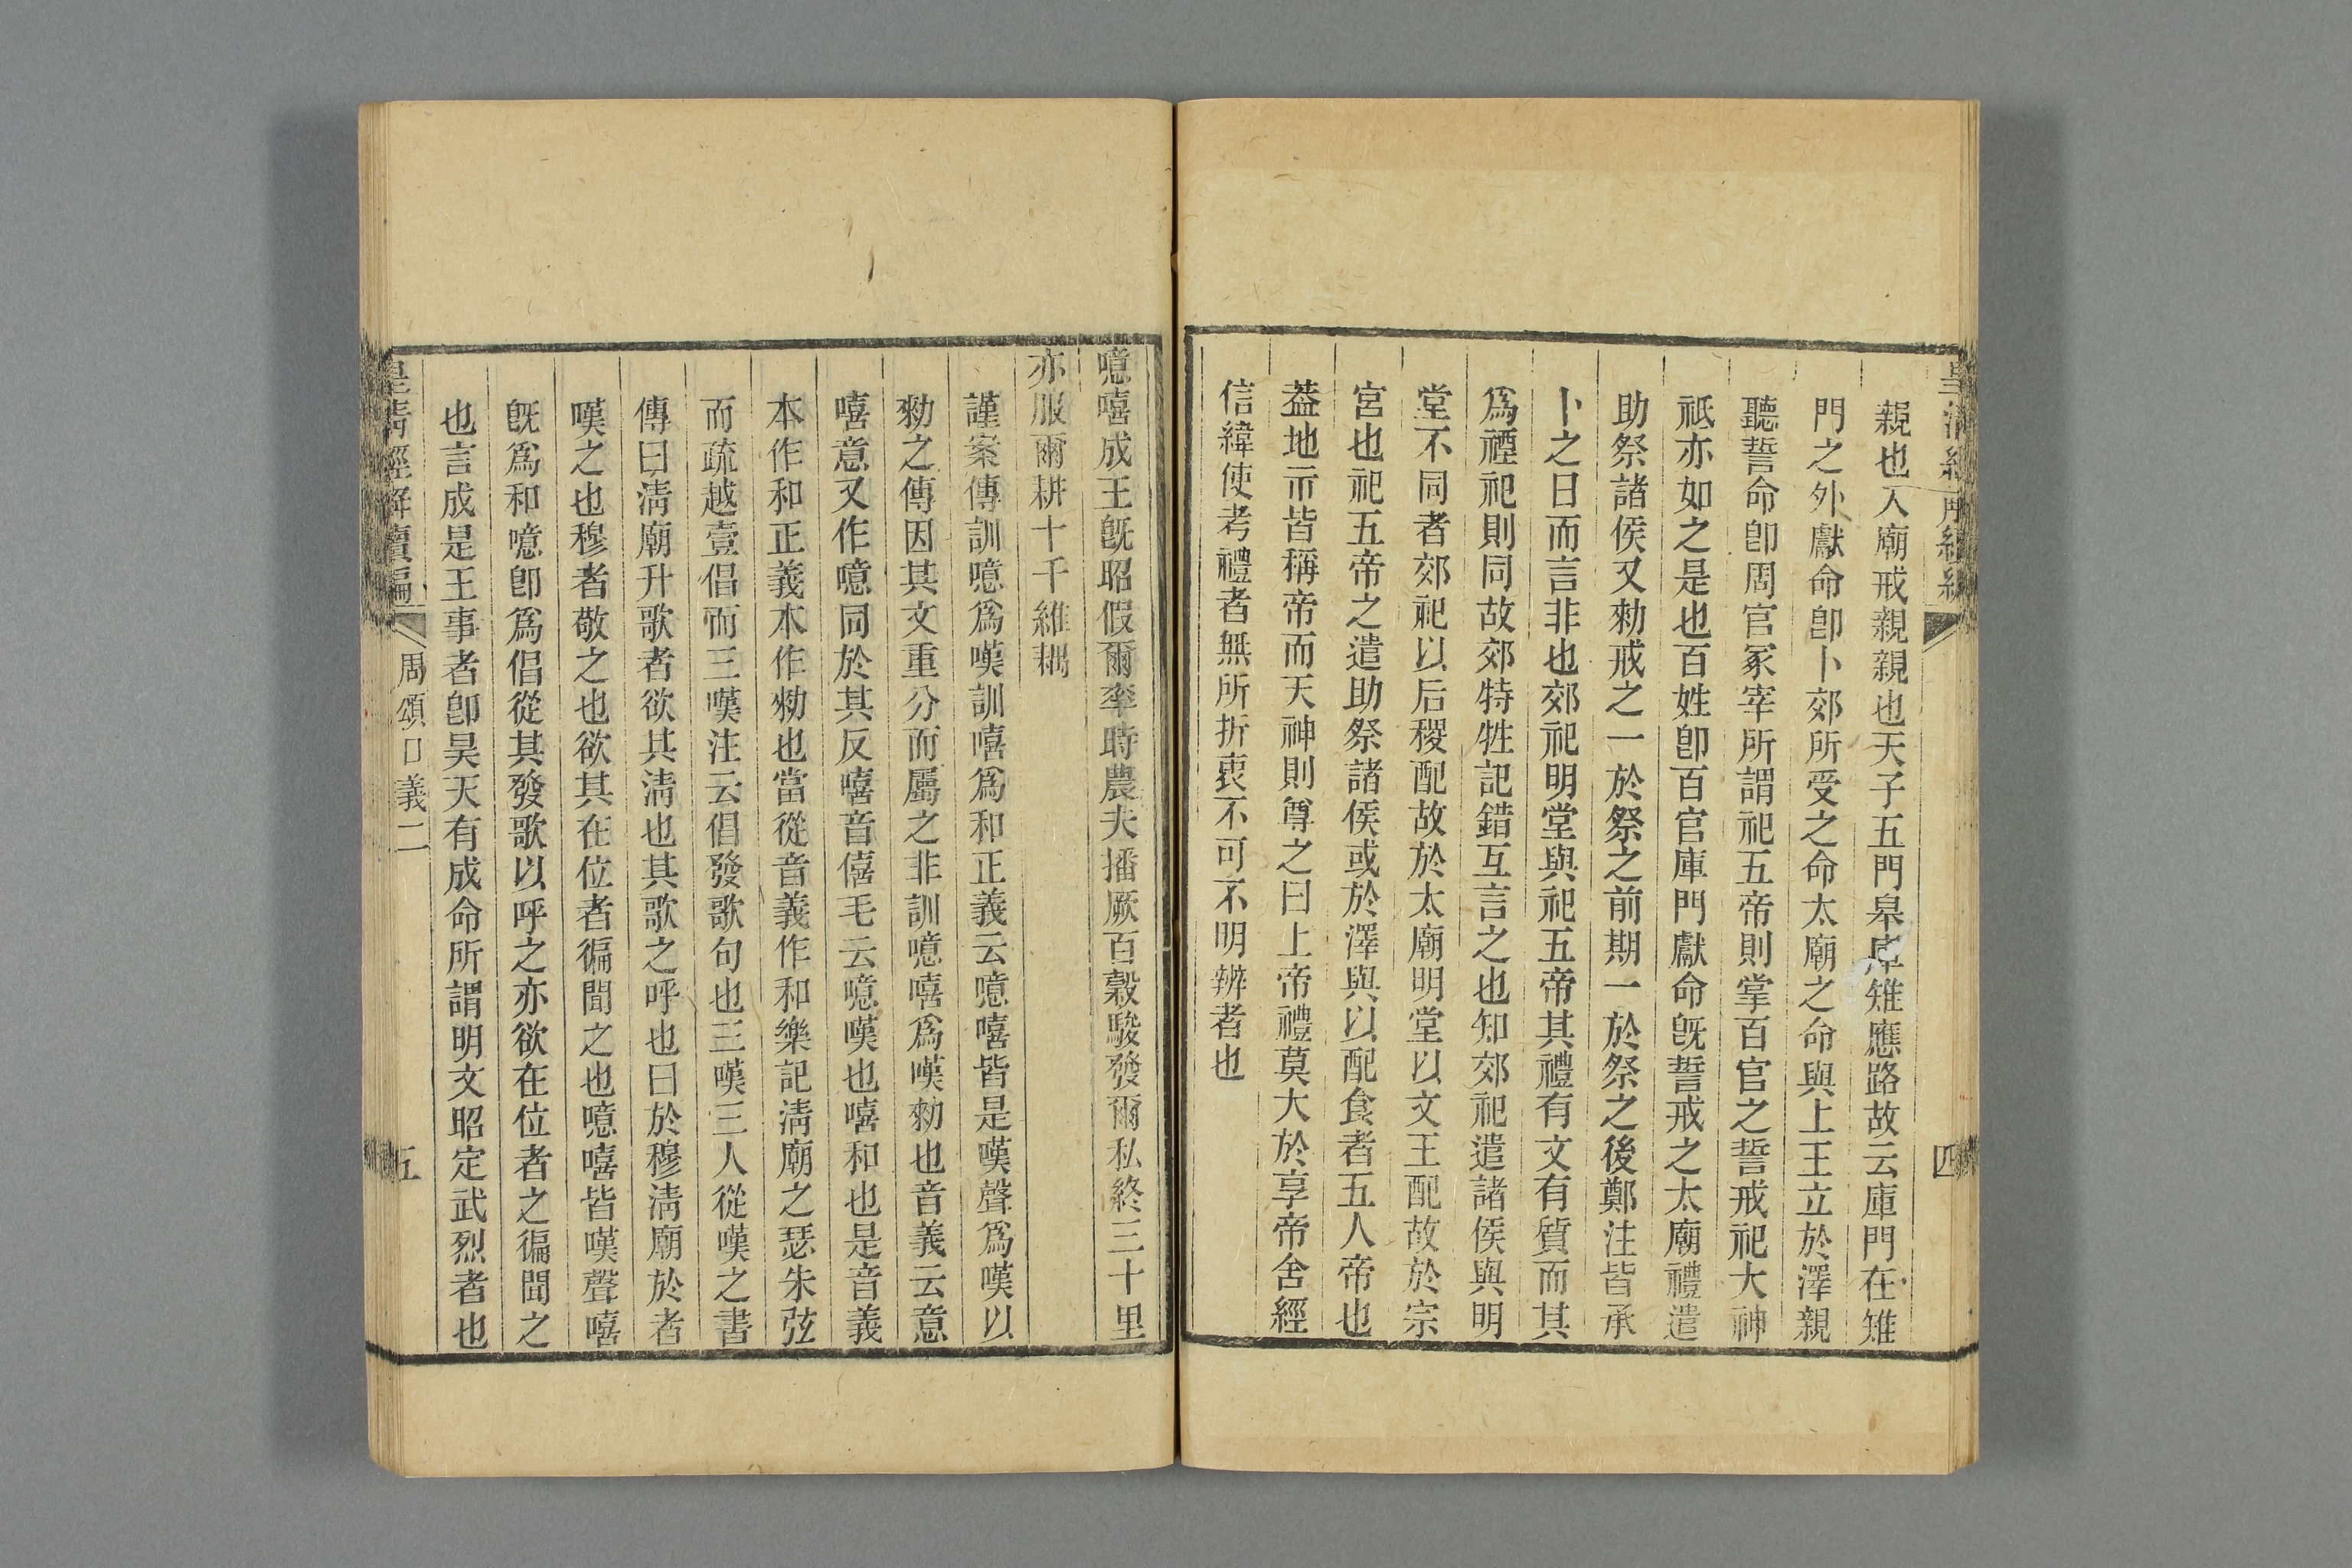 親也入廟戒親親也天子五門皋庫雉應路故云庫門在雉
門之外獻命卽卜郊所受之命太廟之命與上王立於澤親
聽誓命卽周官冢宰所謂祀五帝則掌百官之誓戒祀大神
祇亦如之是也百姓卽百官庫門獻命旣誓戒之太廟禮遣
助祭諸侯又勑戒之一於祭之前期一於祭之後鄭注皆承
卜之日而言非也郊祀明堂與祀五帝其禮有文有質而其
爲禋祀則同故郊特牲記錯互言之也知郊祀遣諸侯與明
堂不同者郊祀以后稷配故於太廟明堂以文王配故於宗
宮也祀五帝之遣助祭諸侯或於澤與以配食者五人帝也
葢地示皆稱帝而天神則尊之曰上帝禮莫大於享帝舍經
信緯使考禮者無所折衷不可不明辨者也
四
噫嘻成王旣昭假爾率時農夫播厥百榖駿發爾私終三十里
亦服爾耕十千維耦
謹案傳訓噫爲嘆訓嘻爲和正義云噫嘻皆是嘆聲爲嘆以
勑之傳因其文重分而屬之非訓噫嘻爲嘆勑也音義云意
嘻意又作噫同於其反嘻音僖毛云噫嘆也嘻和也是音義
本作和正義本作勑也當從音義作和樂記淸廟之瑟朱弦
而疏越壹倡而三嘆注云倡發歌句也三嘆三人從嘆之書
傳曰淸廟升歌者欲其淸也其歌之呼也曰於穆淸廟於者
嘆之也穆者敬之也欲其在位者徧聞之也噫嘻皆嘆聲嘻
旣爲和噫卽爲倡從其發歌以呼之亦欲在位者之徧聞之
也言成是王事者卽昊天有成命所謂明文昭定武烈者也
皇淸經解續編
周頌口義二
五